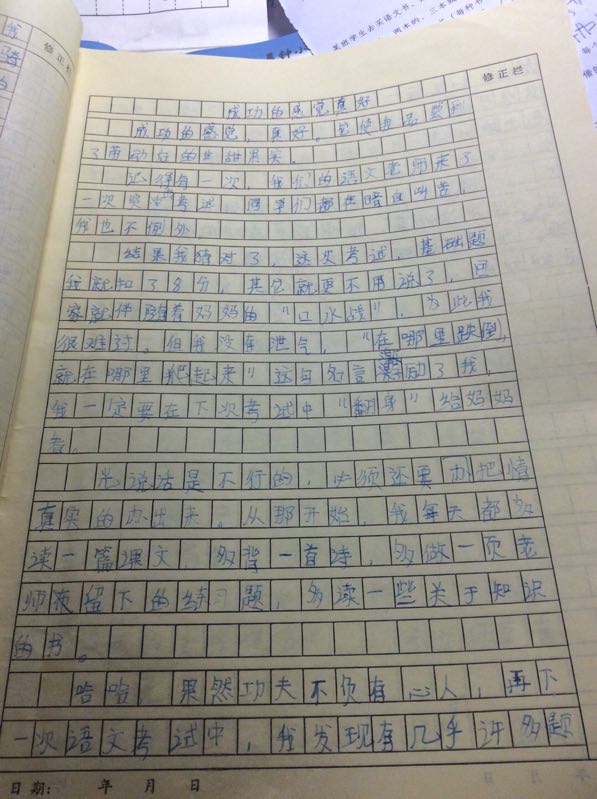 修正栏
修正栏
成功的感觉真好
成功的感觉，真好。它使我品尝到
了劳动后的甜果实。
还得有一次，我们的语文老师来了
一次突击考试，同学们都在暗自叫苦，
我也不例外
结果我猜对了，这次考试，基础题
我就扣了8分，其它就更不用说了，回
家就伴随着妈妈的“口水战”，为此我
很难过。但我没有泄气，“在哪里跌倒，
就在哪里爬起来”这句名言激励了我，
我一定要在下次考试中“翻身”给妈妈
看。
光说话是不行的，必须还要办把情
真实的办出来。从那开始，我每天都多
读一篇课文，多背一首诗，多做一页老
师夜留下的练习题，多读一些关于知识
的书。
哈哈，果然功夫不负有心人，再下
一次语文考试中，我发现有几乎许多题
日期： 年 月 日